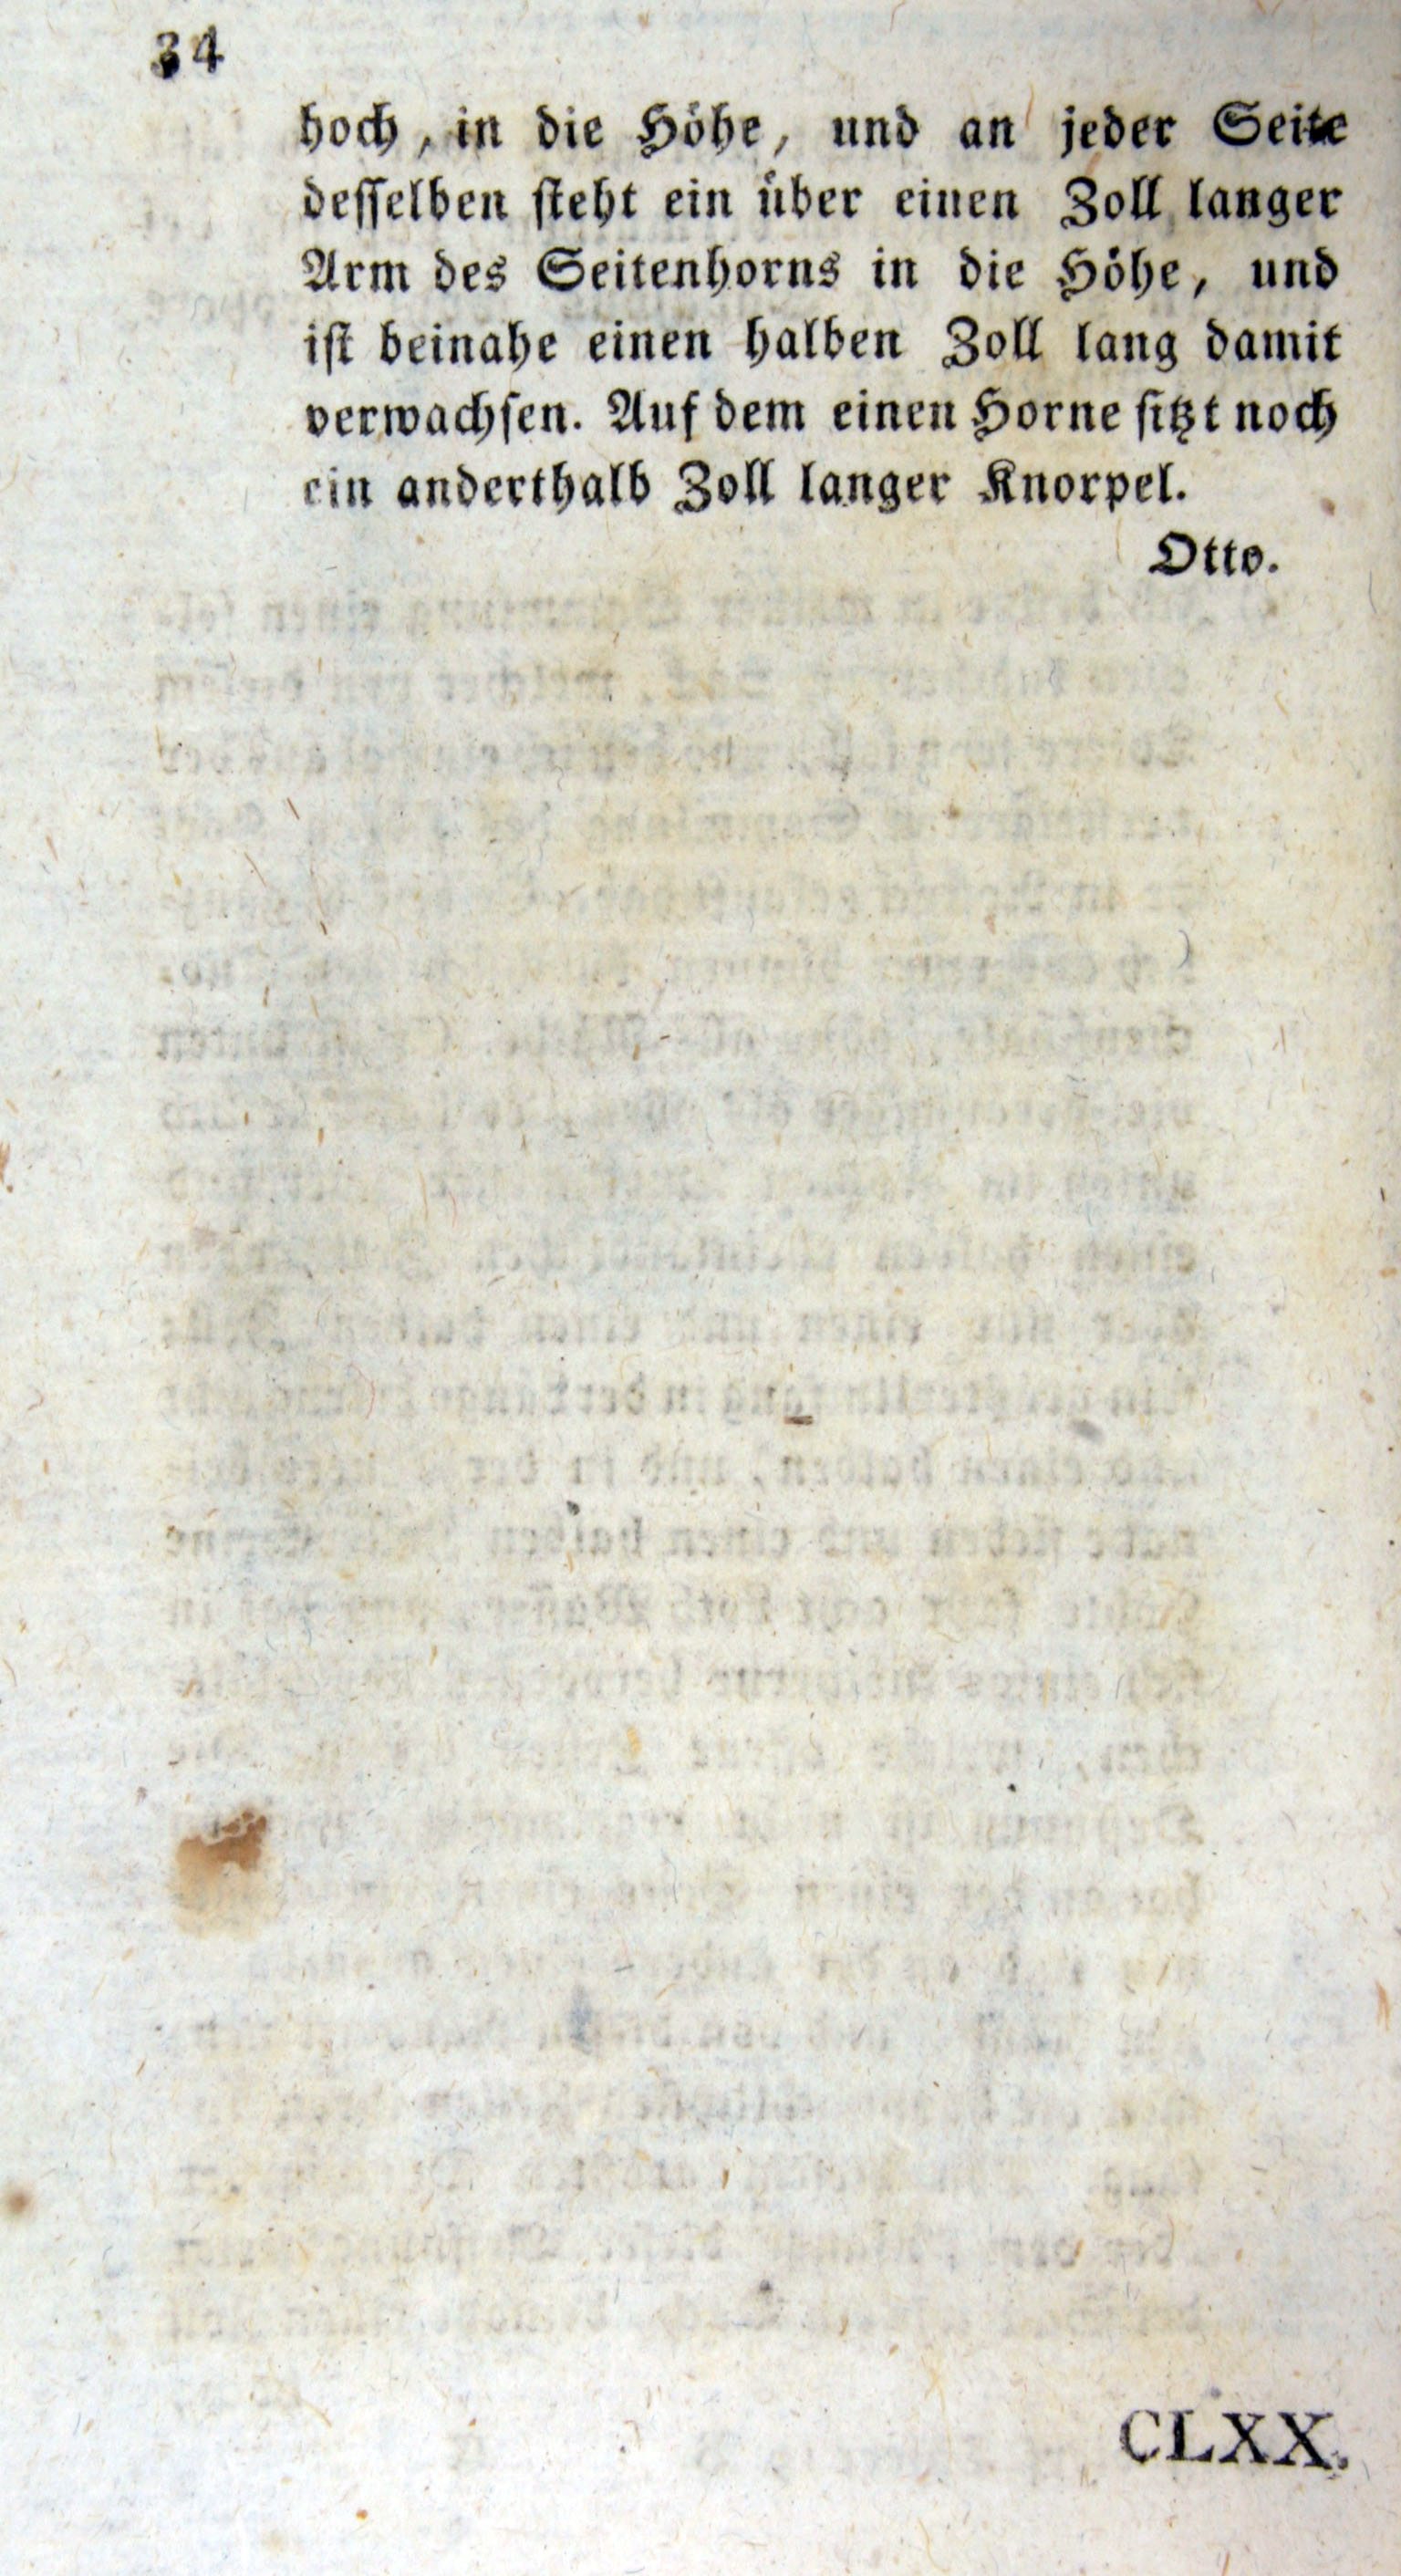 34
hoch, in die Höhe, und an jeder Seite
desselben steht ein über einen Zoll langer
Arm des Seitenhorns in die Höhe, und
ist beinahe einen halben Zoll lang damit
verwachsen. Auf dem einen Horne sitzt noch
ein anderthalb Zoll langer Knorpel.
Otto.
CLXX.